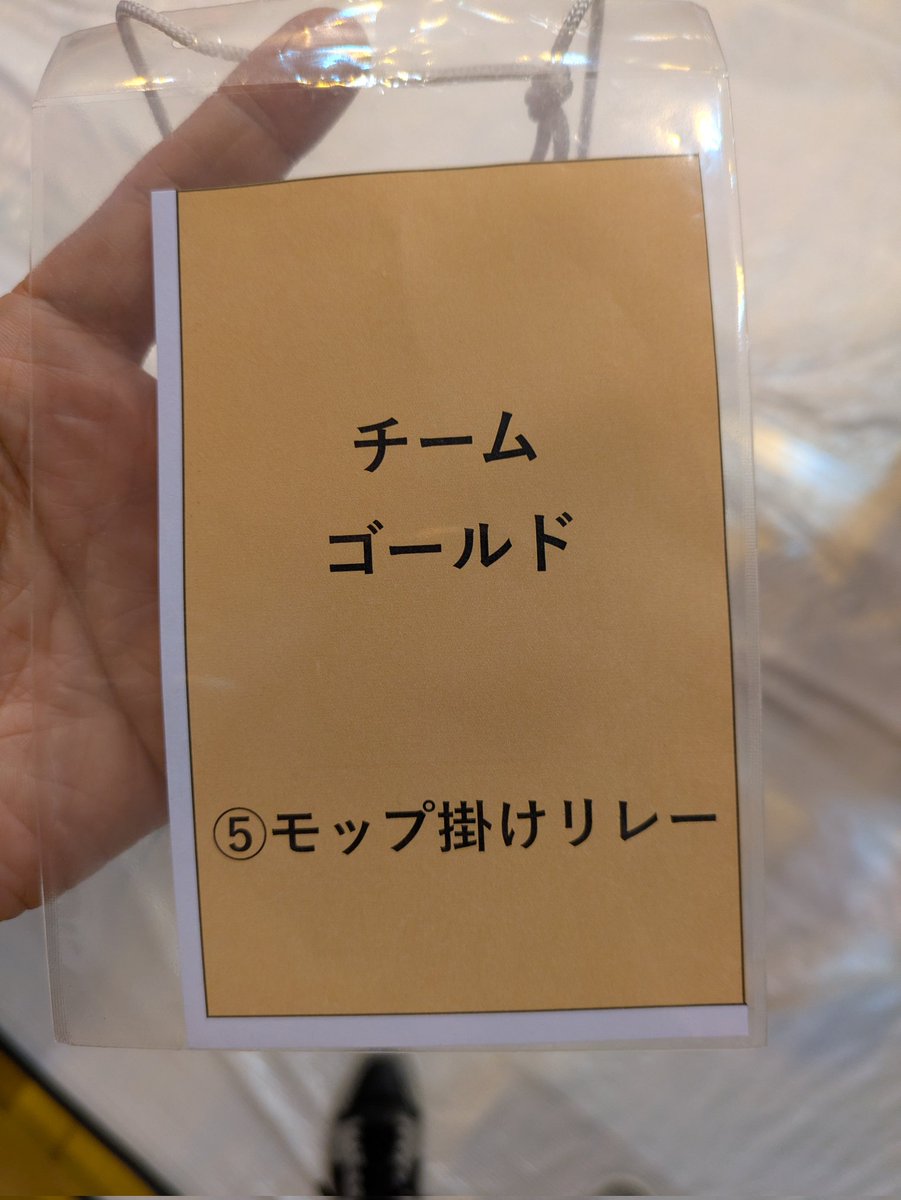 チーム
ゴールド
⑤モップ掛けリレー